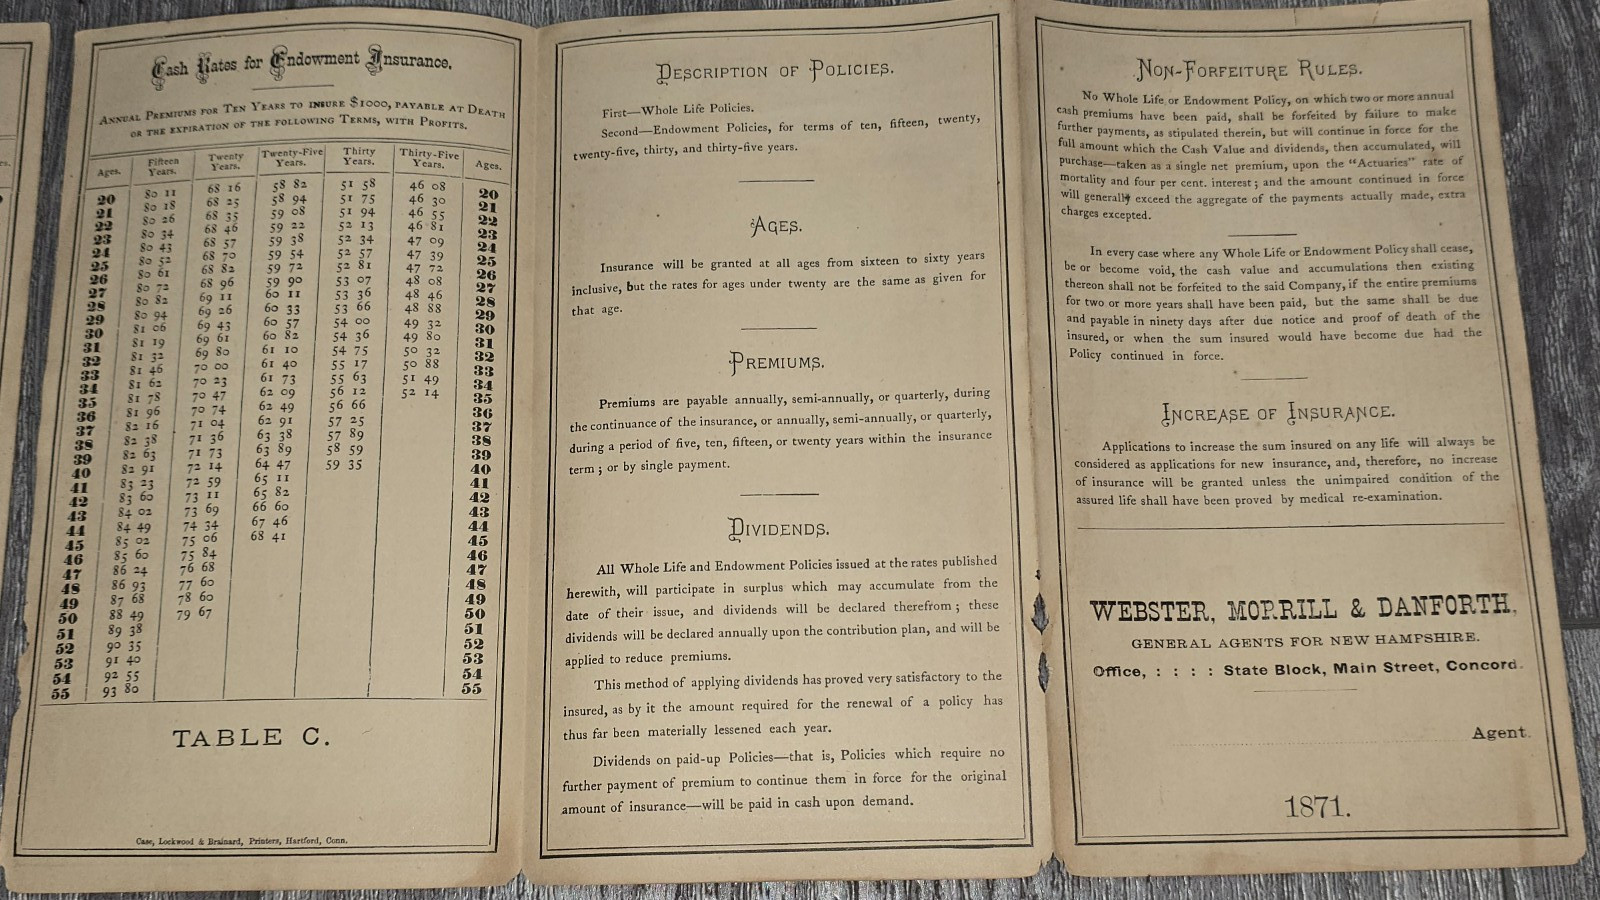 rs.
Cash Rates for Endowment Insurance.
Annual Premiums for Ten Years to insure $1000, payable at Death
or the expiration of the following Terms, with Profits.
Ages. Fifteen Years. Twenty Years. Twenty-Five Years. Thirty Years. Thirty-Five Years. Ages.
20 80 11 68 16 58 82 51 58 46 08 20
21 80 18 68 25 58 94 51 75 46 30 21
22 80 26 68 35 59 08 51 94 46 55 22
23 80 34 68 46 59 22 52 13 46 81 23
24 80 43 68 57 59 38 52 34 47 09 24
25 80 52 68 70 59 54 52 57 47 39 25
26 80 61 68 82 59 72 52 81 47 72 26
27 80 72 68 96 59 90 53 07 48 08 27
28 80 82 69 11 60 11 53 36 48 46 28
29 80 94 69 26 60 33 53 66 48 88 29
30 81 06 69 43 60 57 54 00 49 32 30
31 81 19 69 61 60 82 54 36 49 80 31
32 81 32 69 80 61 10 54 75 50 32 32
33 81 46 70 00 61 40 55 17 50 88 33
34 81 62 70 23 61 73 55 63 51 49 34
35 81 78 70 47 62 09 56 12 52 14 35
36 81 96 70 74 62 49 56 66 36
37 82 16 71 04 62 91 57 25 37
38 82 38 71 36 63 38 57 89 38
39 82 63 71 73 63 89 58 59 39
40 82 91 72 14 64 47 59 35 40
41 83 23 72 59 65 11 41
42 83 60 73 11 65 82 42
43 84 02 73 69 66 60 43
44 84 49 74 34 67 46 44
45 85 02 75 06 68 41 45
46 85 60 75 84 46
47 86 24 76 68 47
48 86 93 77 60 48
49 87 68 78 60 49
50 88 49 79 67 50
51 89 38 51
52 90 35 52
53 91 40 53
54 92 55 54
55 93 80 55
TABLE C.
Case, Lockwood & Brainard, Printers, Hartford, Conn.
Description of Policies.
First—Whole Life Policies.
Second—Endowment Policies, for terms of ten, fifteen, twenty,
twenty-five, thirty, and thirty-five years.
Ages.
Insurance will be granted at all ages from sixteen to sixty years
inclusive, but the rates for ages under twenty are the same as given for
that age.
Premiums.
Premiums are payable annually, semi-annually, or quarterly, during
the continuance of the insurance, or annually, semi-annually, or quarterly,
during a period of five, ten, fifteen, or twenty years within the insurance
term; or by single payment.
Dividends.
All Whole Life and Endowment Policies issued at the rates published
herewith, will participate in surplus which may accumulate from the
date of their issue, and dividends will be declared therefrom; these
dividends will be declared annually upon the contribution plan, and will be
applied to reduce premiums.
This method of applying dividends has proved very satisfactory to the
insured, as by it the amount required for the renewal of a policy has
thus far been materially lessened each year.
Dividends on paid-up Policies—that is, Policies which require no
further payment of premium to continue them in force for the original
amount of insurance—will be paid in cash upon demand.
Non-Forfeiture Rules.
No Whole Life or Endowment Policy, on which two or more annual
cash premiums have been paid, shall be forfeited by failure to make
further payments, as stipulated therein, but will continue in force for the
full amount which the Cash Value and dividends, then accumulated, will
purchase—taken as a single net premium, upon the "Actuaries" rate of
mortality and four per cent. interest; and the amount continued in force
will generally exceed the aggregate of the payments actually made, extra
charges excepted.
In every case where any Whole Life or Endowment Policy shall cease,
be or become void, the cash value and accumulations then existing
thereon shall not be forfeited to the said Company, if the entire premiums
for two or more years shall have been paid, but the same shall be due
and payable in ninety days after due notice and proof of death of the
insured, or when the sum insured would have become due had the
Policy continued in force.
Increase of Insurance.
Applications to increase the sum insured on any life will always be
considered as applications for new insurance, and, therefore, no increase
of insurance will be granted unless the unimpaired condition of the
assured life shall have been proved by medical re-examination.
WEBSTER, MORRILL & DANFORTH,
GENERAL AGENTS FOR NEW HAMPSHIRE.
Office, : : : : State Block, Main Street, Concord.
Agent.
1871.